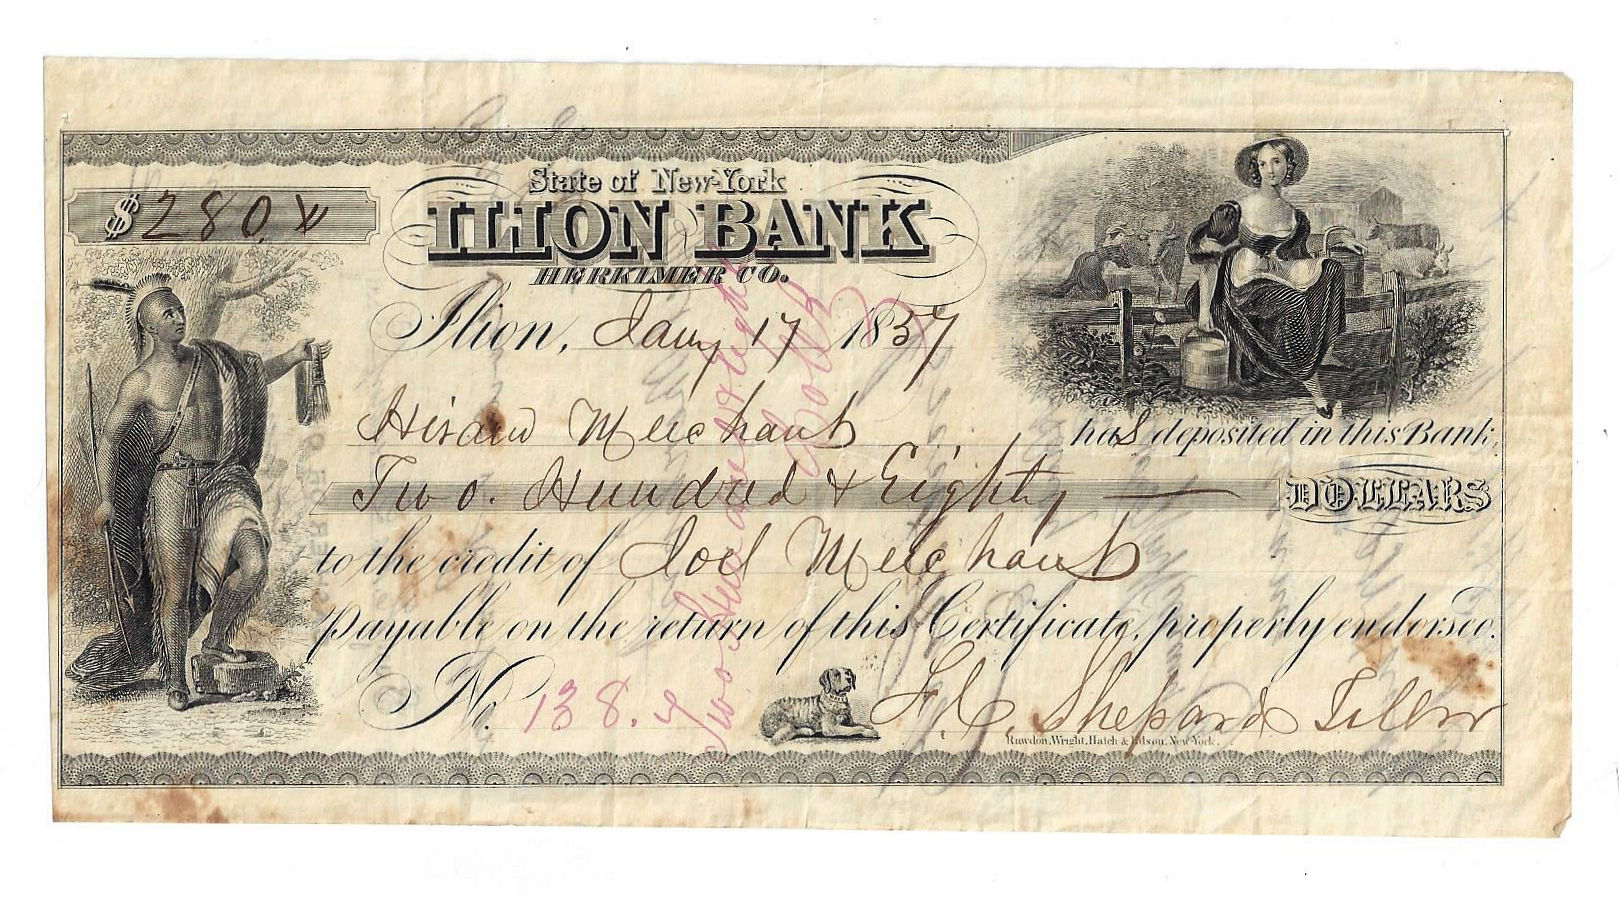 State of New-York
$ 280.
ILION BANK
HERKIMER CO.
Ilion, Jany 17 1857
Hiram Merchant has deposited in this Bank,
Two Hundred & Eighty — DOLLARS
to the credit of Joel Merchant
Payable on the return of this Certificate, properly endorsed.
No. 138. F. C. Shepard Teller
Rawdon, Wright, Hatch & Edson, New-York.
Two Hundred & Eighty
Dolls